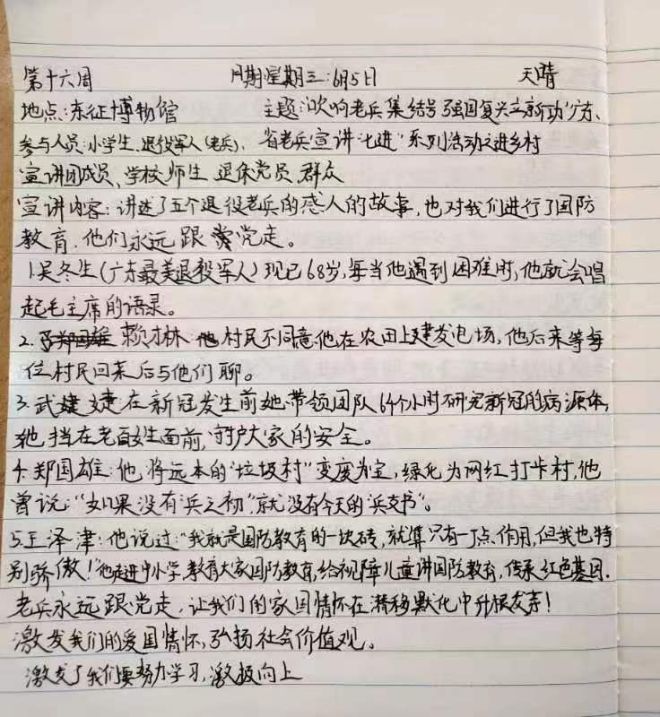 第十六周 日期:星期三:6月5日 天晴
地点:东征博物馆 主题:吹响老兵集结号 强国复兴立新功"广东、
参与人员:小学生、退役军人(老兵)、省老兵宣讲"七进"系列活动之进乡村
宣讲团成员、学校师生 退休党员 群众
宣讲内容:讲述了五个退役老兵的感人的故事,也对我们进行了国防
教育.他们永远跟党走。
1.吴冬生(广东最美退役军人)现已68岁,每当他遇到困难时,他就会唱
起毛主席的语录。
2. 赖林:他村民不同意他在农田上建发电场,他后来等每
位村民回来后与他们聊。
3.武婕 在新冠发生前她带领团队64个小时研究新冠的病源体,
她挡在老百姓面前,守护大家的安全。
4.郑国雄:他将远本的"垃圾村"变废为宝,绿化为网红打卡村,他
曾说:"如果没有兵之初"就没有今天的"兵支书"。
5.王泽津:他说过:"我就是国防教育的一块砖,就算只有一丁点作用,但我也特
别骄傲!"他走进中小学,教育大家国防教育,给视障儿童讲国防教育,传承红色基因.
老兵永远跟党走,让我们的家国情怀在潜移默化中升级!
激发我们的爱国情怀,弘扬社会价值观。
激发了我们要努力学习,激极向上